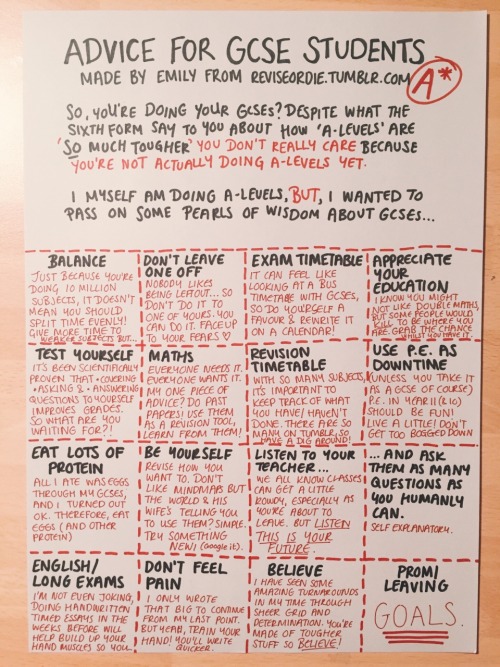 ADVICE FOR GCSE STUDENTS
MADE BY EMILY FROM REVISEORDIE.TUMBLR.COM
A*
SO, YOU'RE DOING YOUR GCSES? DESPITE WHAT THE
SIXTH FORM SAY TO YOU ABOUT HOW 'A-LEVELS' ARE
'SO MUCH TOUGHER' YOU DON'T REALLY CARE BECAUSE
YOU'RE NOT ACTUALLY DOING A-LEVELS YET.
I MYSELF AM DOING A-LEVELS, BUT, I WANTED TO
PASS ON SOME PEARLS OF WISDOM ABOUT GCSES...
BALANCE
JUST BECAUSE YOU'RE
DOING 10 MILLION
SUBJECTS, IT DOESN'T
MEAN YOU SHOULD
SPLIT TIME EVENLY!
GIVE MORE TIME TO
WEAKER SUBJECTS BUT...
DON'T LEAVE
ONE OFF
NOBODY LIKES
BEING LEFT OUT... SO
DON'T DO IT TO
ONE OF YOURS. YOU
CAN DO IT. FACE UP
TO YOUR FEARS ♡
EXAM TIMETABLE
IT CAN FEEL LIKE
LOOKING AT A BUS
TIMETABLE WITH GCSES,
SO DO YOURSELF A
FAVOUR & REWRITE IT
ON A CALENDAR!
APPRECIATE
YOUR
EDUCATION
I KNOW YOU MIGHT
NOT LIKE DOUBLE MATHS,
BUT SOME PEOPLE WOULD
KILL TO BE WHERE YOU
ARE. GRAB THE CHANCE
WHILST YOU HAVE IT.
TEST YOURSELF
IT'S BEEN SCIENTIFICALLY
PROVEN THAT •COVERING
•ASKING & •ANSWERING
QUESTIONS TO YOURSELF
IMPROVES GRADES.
SO WHAT ARE YOU
WAITING FOR?!
MATHS
EVERYONE NEEDS IT.
EVERYONE WANTS IT.
MY ONE PIECE OF
ADVICE? DO PAST
PAPERS! USE THEM
AS A REVISION TOOL,
LEARN FROM THEM!
REVISION
TIMETABLE
WITH SO MANY SUBJECTS,
IT'S IMPORTANT TO
KEEP TRACK OF WHAT
YOU HAVE/HAVEN'T
DONE. THERE ARE SO
MANY ON TUMBLR, SO
HAVE A DIG AROUND!
USE P.E. AS
DOWNTIME
(UNLESS YOU TAKE IT
AS A GCSE OF COURSE)
P.E. IN YEAR 11 (R.10)
SHOULD BE FUN!
LIVE A LITTLE! DON'T
GET TOO BOGGED DOWN
EAT LOTS OF
PROTEIN
ALL I ATE WAS EGGS
THROUGH MY GCSES,
AND I TURNED OUT
OK. THEREFORE, EAT
EGGS (AND OTHER
PROTEIN)
BE YOURSELF
REVISE HOW YOU
WANT TO. DON'T
LIKE MINDMAPS BUT
THE WORLD & HIS
WIFE'S TELLING YOU
TO USE THEM? SIMPLE.
TRY SOMETHING
NEW! (Google it).
LISTEN TO YOUR
TEACHER...
WE ALL KNOW CLASSES
CAN GET A LITTLE
ROWDY, ESPECIALLY AS
YOU'RE ABOUT TO
LEAVE. BUT LISTEN
THIS IS YOUR
FUTURE.
... AND ASK
THEM AS MANY
QUESTIONS AS
YOU HUMANLY
CAN.
SELF EXPLANATORY.
ENGLISH/
LONG EXAMS
I'M NOT EVEN JOKING,
DOING HANDWRITTEN
TIMED ESSAYS IN THE
WEEKS BEFORE WILL
HELP BUILD UP YOUR
HAND MUSCLES SO YOU..
DON'T FEEL
PAIN
I ONLY WROTE
THAT BIG TO CONTINUE
FROM MY LAST POINT.
BUT YEAH, TRAIN YOUR
HAND! YOU'LL WRITE
QUICKER.
BELIEVE
I HAVE SEEN SOME
AMAZING TURNAROUNDS
IN MY TIME THROUGH
SHEER GRID AND
DETERMINATION. YOU'RE
MADE OF TOUGHER
STUFF SO BELIEVE!
PROM/
LEAVING
GOALS.